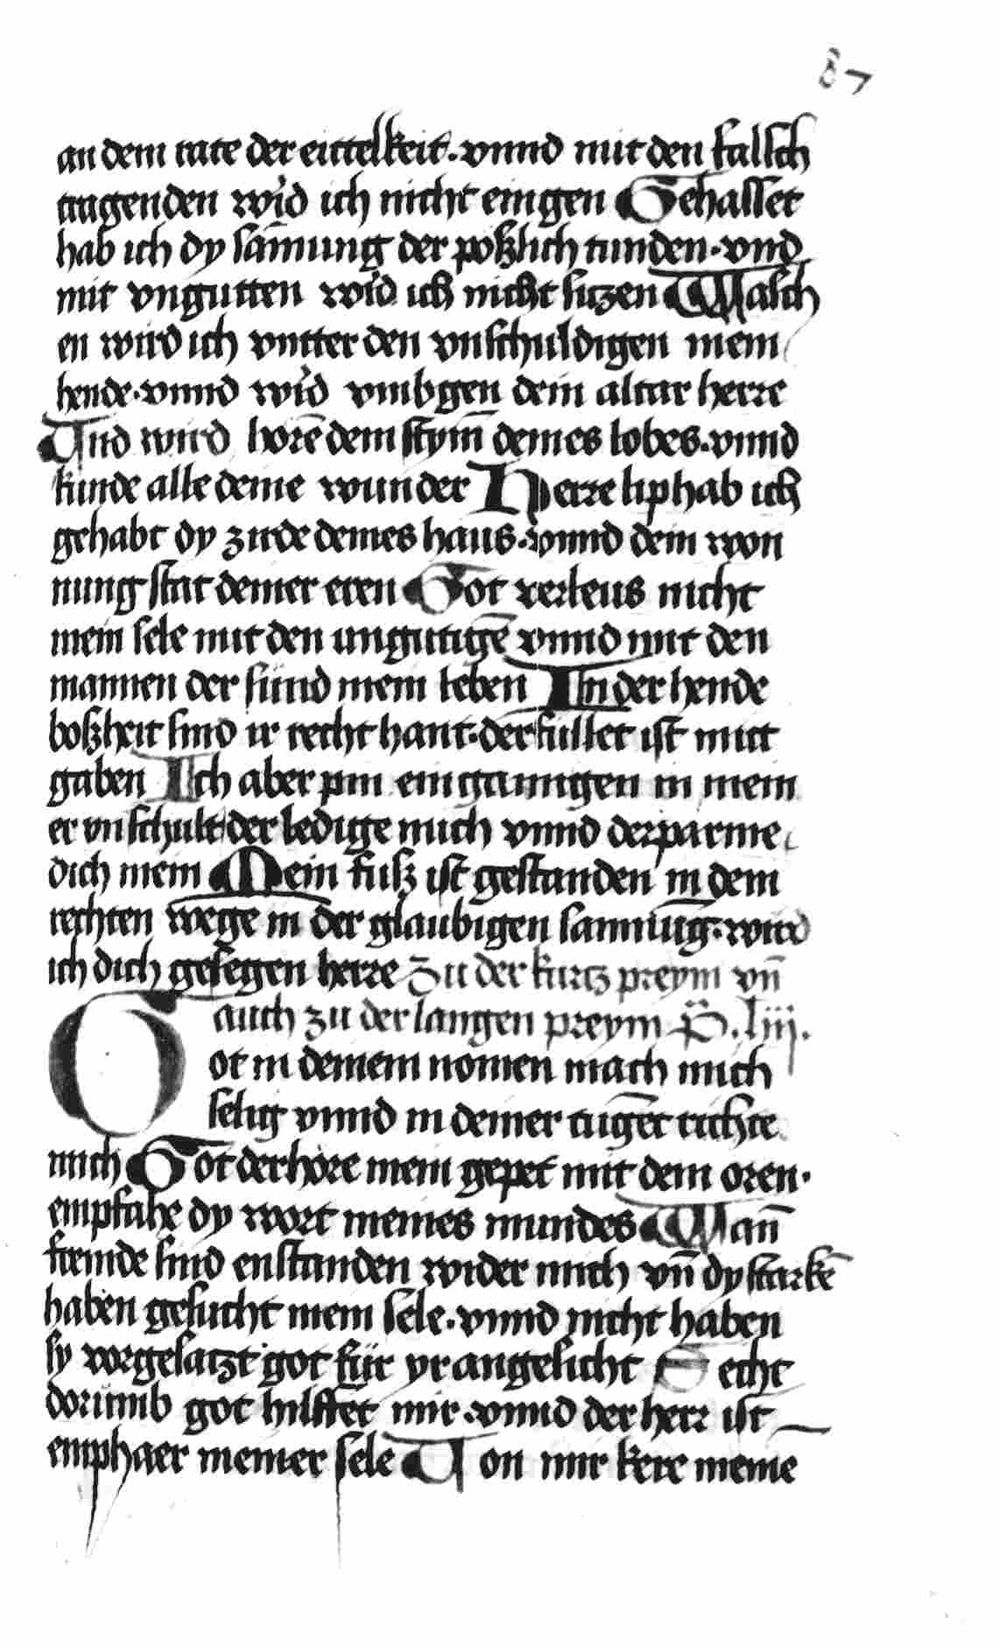 87
an dem rate der eittelkeit. vnnd mit den falsch
tragenden wi'd ich nicht eingen Gehasset
hab ich dy sam̄nung der poßlich tunden. vnd
mit vngutten wi'd ich nicht siczen Wasch
en wird ich vntter den vnschuldigen mein
hende. vnnd wi'd vmbgen dein altar herre
Vnd wird horē dein stym̄ deines lobes. vnnd
kunde alle deine wunder Herre lip hab ich
gehabt dy zirde deines haus. vnnd dein won
nung stat deiner eren Got verleus nicht
mein sele mit den ungutigē vnnd mit den
mannen der sünd mein leben In der hende
boßheit sind ir recht hant. derfullet ist mitt
gaben Ich aber pin eingannigen in mein
er vnschult der ledige mich vnnd derparme
dich mein Mein fuß ist gestanden in dem
rechten wege in der glaubigen sammūg. wird
ich dich gesegen herre Zu der kurtz preym vn̄
auch zu der langen preym P̄. liij.
Got in deinem nomen mach mich
selig vnnd in deiner tugēt richte
mich Got derhore mein gepet mit dem oren.
empfahe dy wort meines mundes Wan̄
fremde sind enstanden wider mich vn̄ dy starkē
haben gesucht mein sele. vnnd nicht haben
sy vorgesatzt got für yr angesicht Secht
dorumb got hilffet mir. vnnd der herr ist
emphaer meiner sele Von mir kere meine